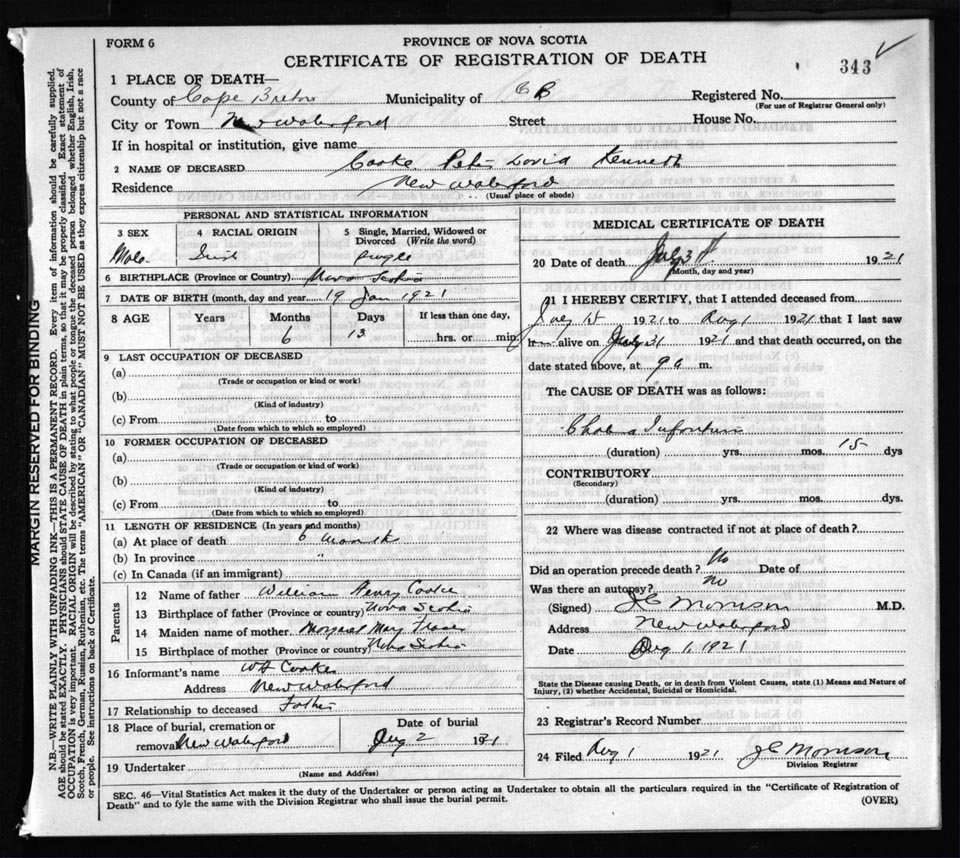 FORM 6
PROVINCE OF NOVA SCOTIA
CERTIFICATE OF REGISTRATION OF DEATH
343
1 PLACE OF DEATH—
County of Cape Breton Municipality of C B Registered No.
(For use of Registrar General only)
City or Town New Waterford Street House No.
If in hospital or institution, give name
2 NAME OF DECEASED Cooke Peter David Kenneth
Residence New Waterford
(Usual place of abode)
PERSONAL AND STATISTICAL INFORMATION
3 SEX 4 RACIAL ORIGIN 5 Single, Married, Widowed or Divorced (Write the word)
Male Irish Single
6 BIRTHPLACE (Province or Country) Nova Scotia
7 DATE OF BIRTH (month, day and year 19 Jan 1921
8 AGE Years Months Days If less than one day,
6 13 hrs. or min.
9 LAST OCCUPATION OF DECEASED
(a)
(Trade or occupation or kind or work)
(b)
(Kind of industry)
(c) From to
(Date from which to which so employed)
10 FORMER OCCUPATION OF DECEASED
(a)
(Trade or occupation or kind of work)
(b)
(Kind of industry)
(c) From to
(Date from which to which so employed)
11 LENGTH OF RESIDENCE (In years and months)
(a) At place of death 6 months
(b) In province "
(c) In Canada (if an immigrant)
Parents
12 Name of father William Henry Cooke
13 Birthplace of father (Province or country) Nova Scotia
14 Maiden name of mother Margaret Mary Fraser
15 Birthplace of mother (Province or country) Nova Scotia
16 Informant's name WH Cooke
Address New Waterford
17 Relationship to deceased Father
18 Place of burial, cremation or removal New Waterford Date of burial Aug 2 1921
19 Undertaker
(Name and Address)
MEDICAL CERTIFICATE OF DEATH
20 Date of death July 31 1921
(Month, day and year)
21 I HEREBY CERTIFY, that I attended deceased from
July 15 1921 to Aug 1 1921 that I last saw
h alive on July 31 1921 and that death occurred, on
date stated above, at 9 a m.
The CAUSE OF DEATH was as follows:
Cholera Infantum
(duration) yrs. mos. 15 dys
CONTRIBUTORY
(Secondary)
(duration) yrs. mos. dys.
22 Where was disease contracted if not at place of death?
Did an operation precede death? No Date of
Was there an autopsy? No
(Signed) J C Morrison M.D.
Address New Waterford
Date Aug 1, 1921
State the Disease causing Death, or in death from Violent Causes, state (1) Means and Nature of
Injury, (2) whether Accidental, Suicidal or Homicidal.
23 Registrar's Record Number
24 Filed Aug 1 1921 J C Morrison
Division Registrar
SEC. 46—Vital Statistics Act makes it the duty of the Undertaker or person acting as Undertaker to obtain all the particulars required in the "Certificate of Registration of
Death" and to fyle the same with the Division Registrar who shall issue the burial permit.
(OVER)
MARGIN RESERVED FOR BINDING
N.B.—WRITE PLAINLY WITH UNFADING INK—THIS IS A PERMANENT RECORD. Every item of information should be carefully supplied.
AGE should be stated EXACTLY. PHYSICIANS should STATE CAUSE OF DEATH in plain terms, so that it may be properly classified. Exact statement of
OCCUPATION is very important. RACIAL ORIGIN will be described by stating to what people or tongue the deceased person belonged whether English, Irish,
Scotch, French, German, Russian, Ruthenian, etc. The terms "AMERICAN" OR "CANADIAN" MUST NOT BE USED as they express citizenship but not a race
or people. See instructions on back of Certificate.